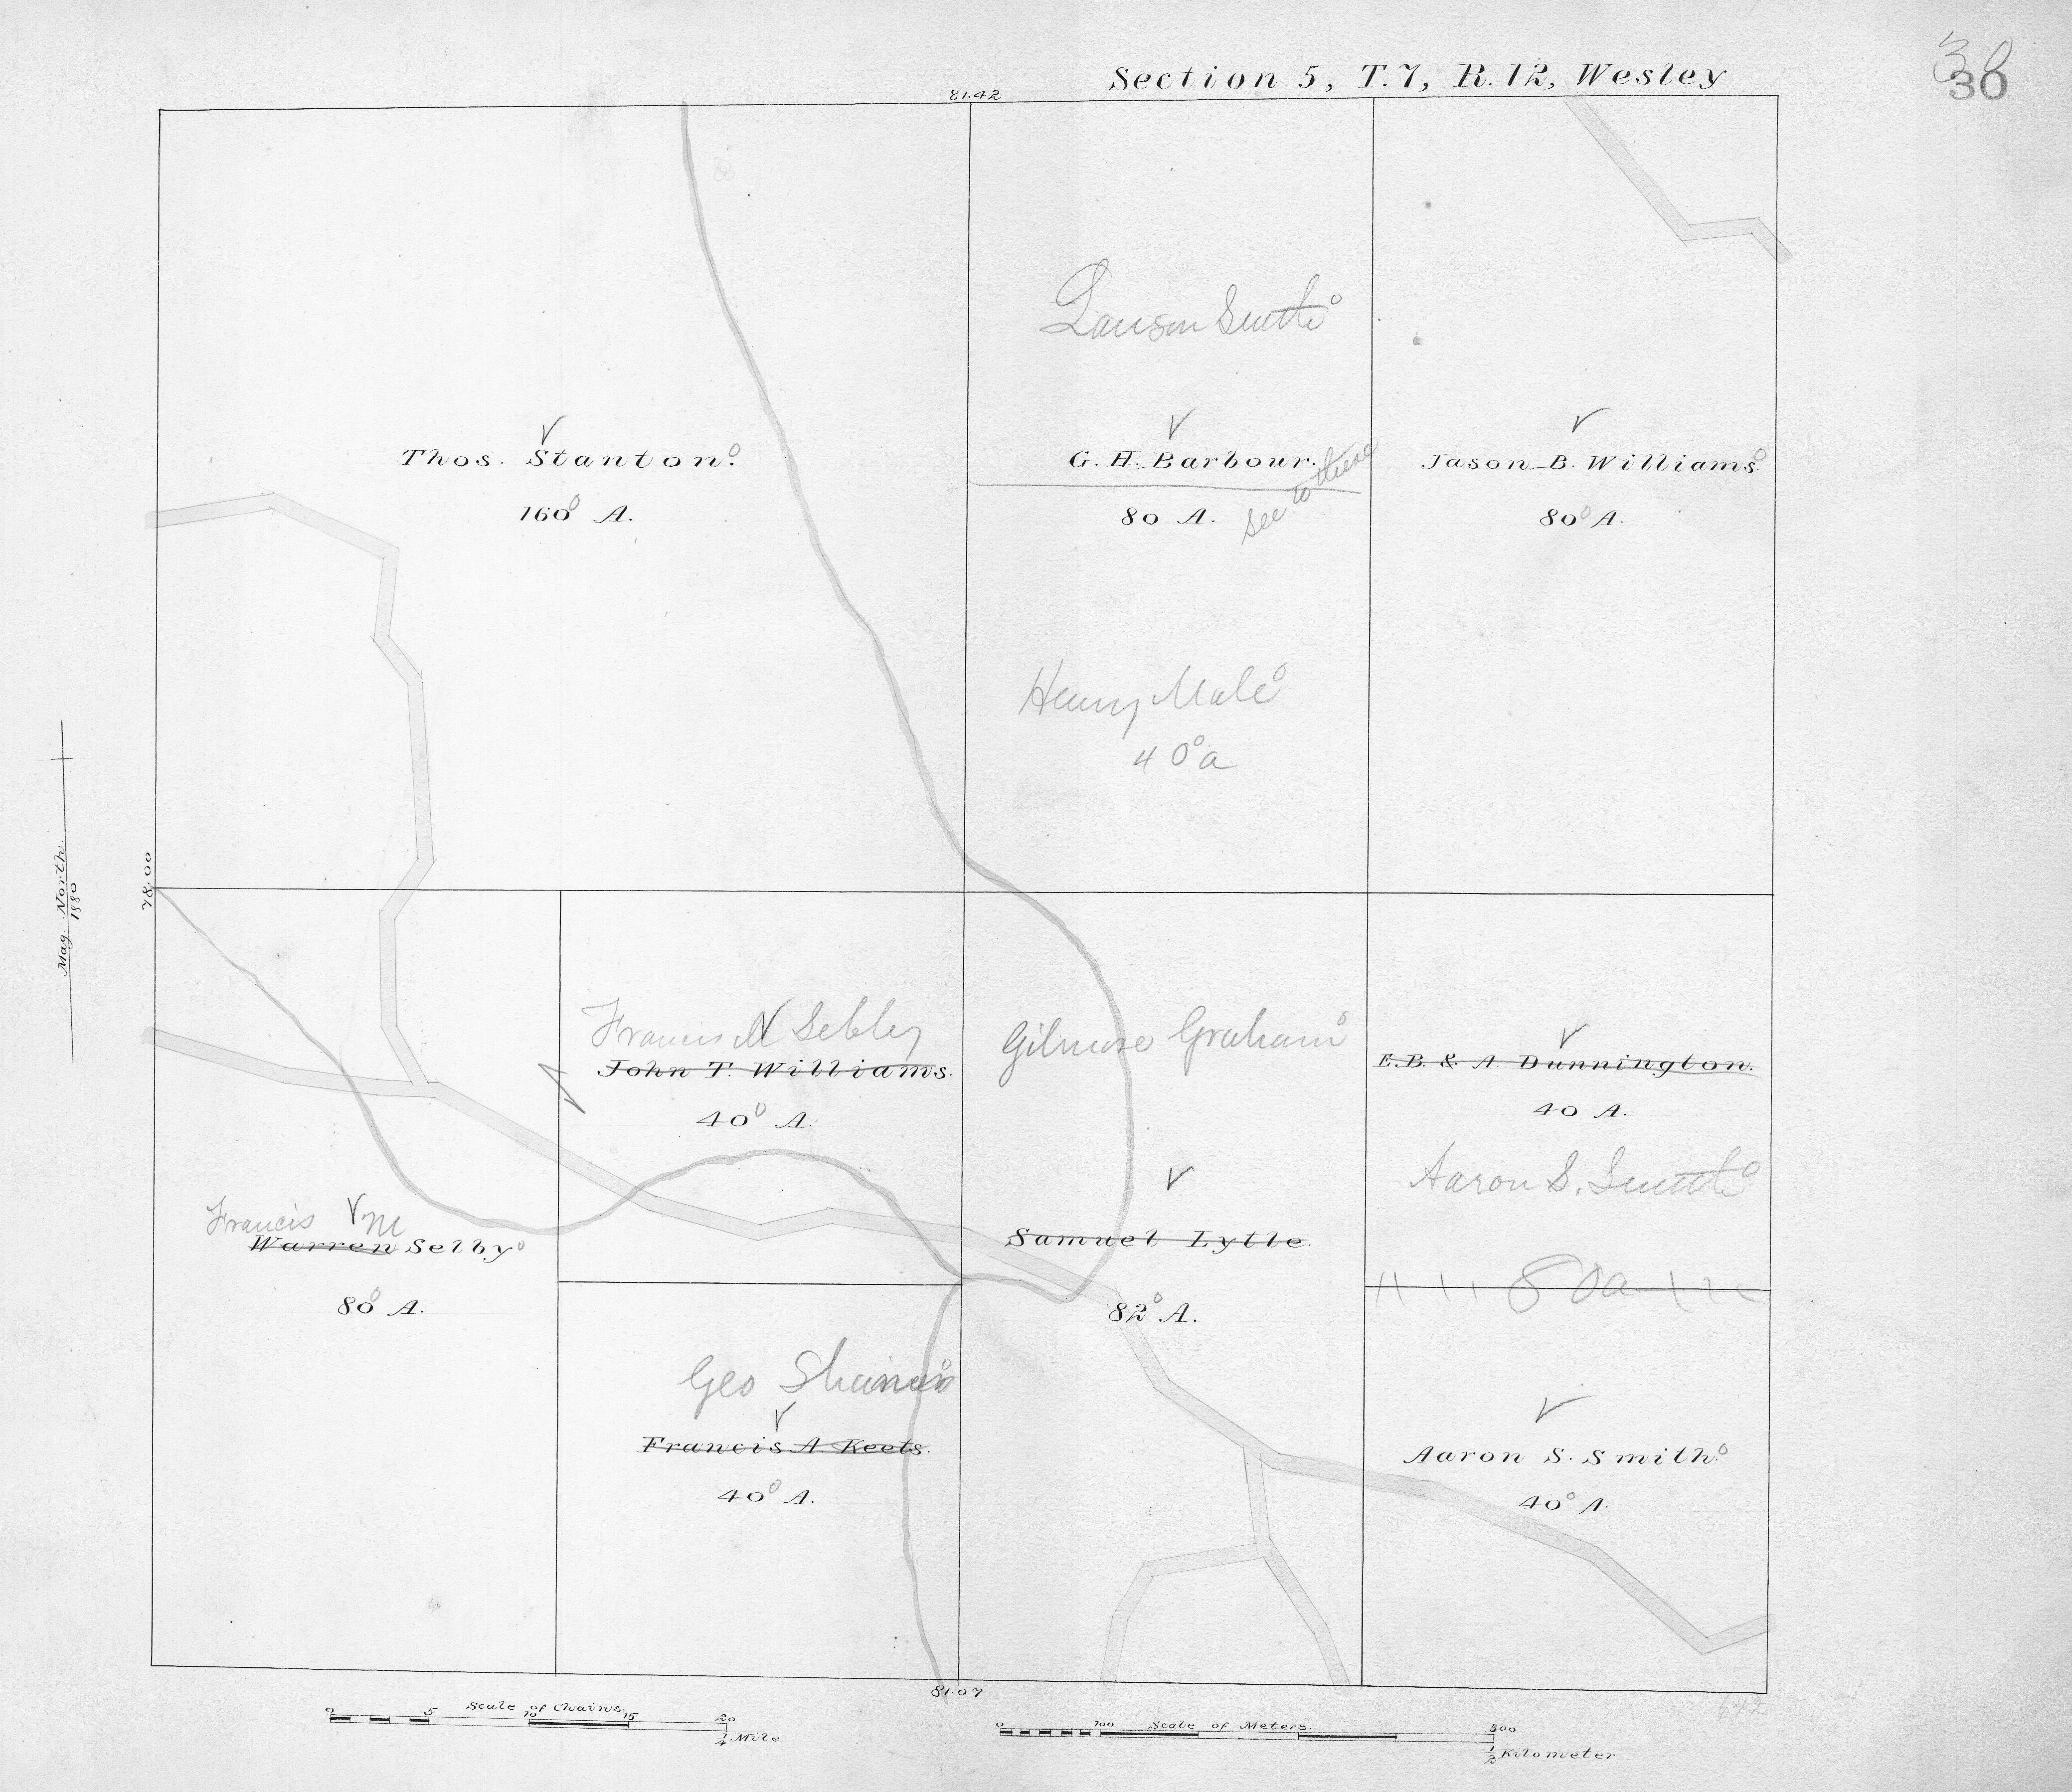 Section 5, T.7, R.12, Wesley
30
30
81.42
Lawson Smith
Thos. Stanton.
160 A.
G. H. Barbour.
80 A.
See to these
Jason B. Williams
80 A.
Henry Male
40 a
78.00
Mag. North
1880
Francis M Selbey
John T. Williams.
40 A.
Gilmore Graham
E.B. & A Dunnington.
40 A.
Aaron S. Smith
80a
Francis M
Warren Selby
80 A.
Samuel Lytle.
82 A.
Geo
Francis A Keets.
40 A.
Aaron S. Smith
40 A.
81.07
642
Scale of Chains.
0 5 10 15 20
1/4 Mile
Scale of Meters.
0 100 500
1/2 Kilometer